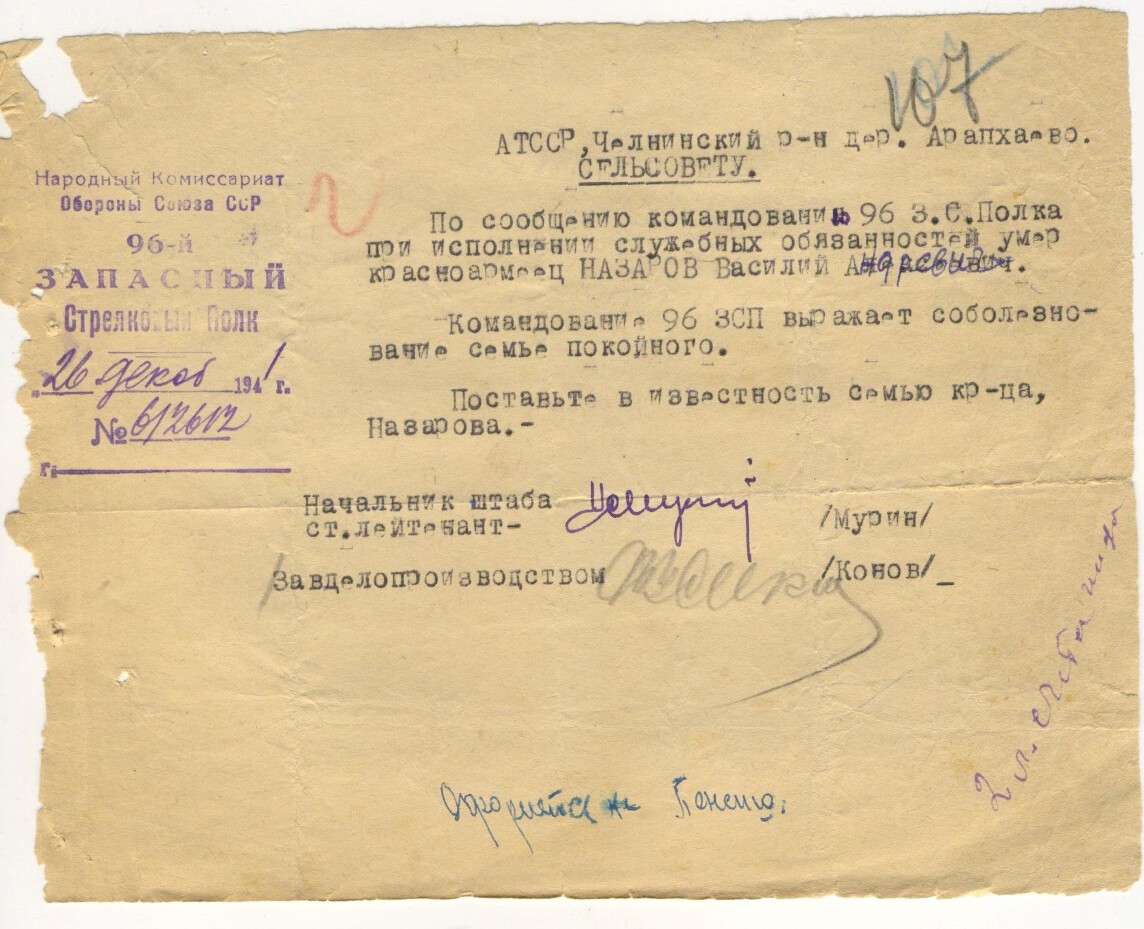 107
АТССР, Челнинский р-н дер. Арапхаево.
СЕЛЬСОВЕТУ.
Народный Комиссариат
Обороны Союза ССР
96-й
ЗАПАСНЫЙ
Стрелковый Полк
„26 декаб 1941 г.
№ 612612
г.
По сообщению командования 96 З.С.Полка
при исполнении служебных обязанностей умер
красноармеец НАЗАРОВ Василий Андреевич.
Командование 96 ЗСП выражает соболезно-
вание семье покойного.
Поставьте в известность семью кр-ца,
Назарова.-
Начальник штаба
ст.лейтенант- /Мурин/
Завделопроизводством /Конов/_